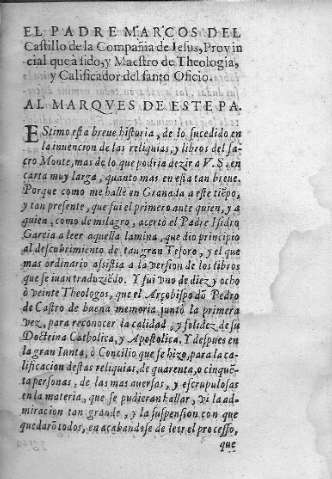 EL PADRE MARCOS DEL
Castillo de la Compañia de Iesus, Provin
cial que a sido, y Maestro de Theologia,
y Calificador del santo Oficio.
AL MARQVES DE ESTEPA.
EStimo esta breue historia, de lo sucedido en
la inuencion de las reliquias, y libros del sa-
cro Monte, mas de lo que podria dezir a V.S. en
carta muy larga, quanto mas en esta tan breue.
Porque como me hallè en Granada a este tiẽpo,
y tan presente, que fui el primero ante quien, y a
quien, como de milagro, acertò el Padre Isidro
Garcia a leer aquella lamina, que dio principio
al descubrimiento de tan gran Tesoro, y el que
mas ordinario assistia a la version de los libros
que se iuan traduziẽdo. Y fui vno de diez y ocho
ò veinte Theologos, que el Arçobispo dõ Pedro
de Castro de buena memoria juntò la primera
vez, para reconocer la calidad, y solidez de su
Doctrina Catholica, y Apostolica. Y despues en
la gran Iunta, ò Concilio que se hizo, para la ca-
lificacion destas reliquias, de quarenta, o cinquẽ-
ta personas, de las mas auersas, y escrupulosas
en la materia, que se pudieran hallar, vi la ad-
miracion tan grande, y la suspension con que
quedarõ todos, en acabandose de leer el processo,
que